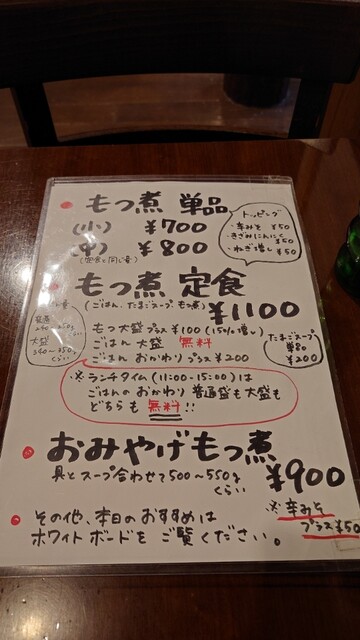 もつ煮 単品
(小) ¥700
(中) ¥800
(定食と同じ量)
トッピング
・辛みそ ¥50
・きざみにんにく ¥50
・ねぎ増し ¥50
もつ煮 定食
(ごはん、たまごスープ、もつ煮)
¥1100
もつ大盛 プラス¥100 (15%増し)
ごはん 大盛 無料
ごはん おかわり プラス ¥200
普通
240~250g
くらい
大盛
340~350g
くらい
たまごスープ
単品
¥200
※ランチタイム (11:00-15:00) は
ごはんのおかわり 普通盛も大盛も
どちらも 無料!!
おみやげもつ煮
具とスープ合わせて500~550g
くらい
¥900
※辛みそ
プラス¥50
その他、本日のおすすめは
ホワイトボードをご覧ください。